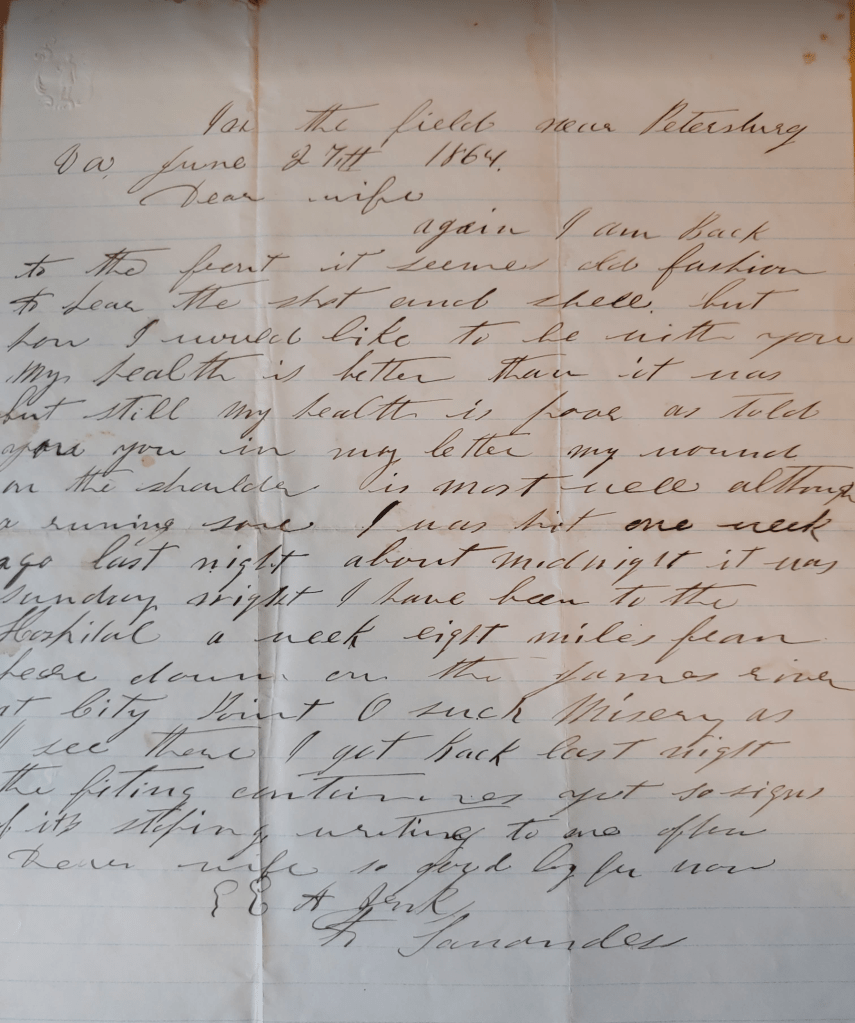 In the field near Petersburg
Va, June 27th 1864.
Dear wife
again I am Back
to the front it seemes old fashion
to hear the shot and shell. but
how I would like to be with you
My health is better than it was
but still my health is poor as told
you you in my letter my wound
on the shoulder is most well although
a runing sore I was hit one week
ago last night about midnight it was
sunday night I have been to the
Hospital a week eight miles from
heare down on the James river
at City Point O such Misery as
I see there I got back last night
the fiting continues yet no signs
of its stoping writing to me often
Dear wife so good by for now
to